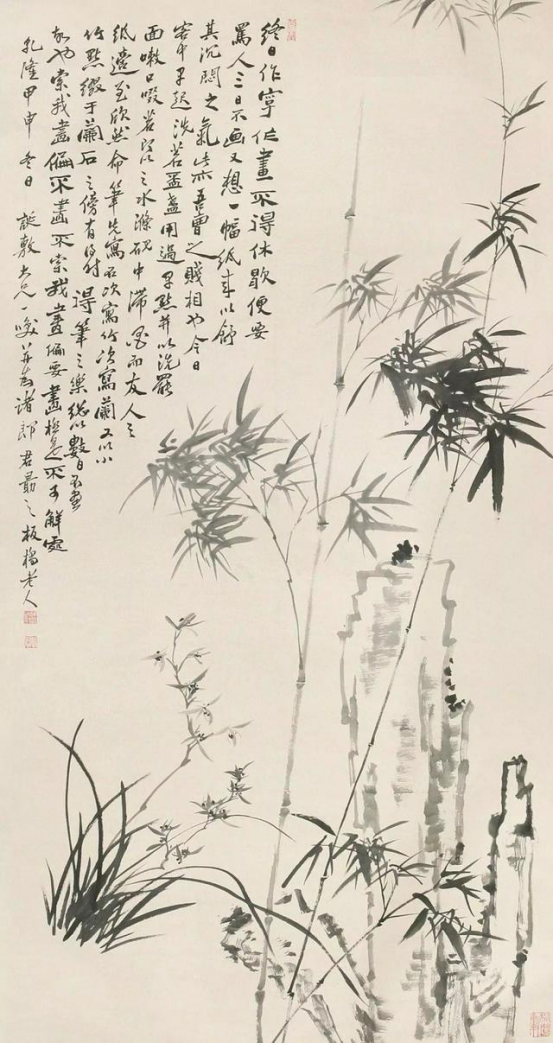 終日作字作畫不得休歇便要
罵人三日不画又想一幅紙來以舒
其沉悶之氣此亦吾曹之賤相也今日
客中早起洗若盃盞用過早點并以洗罷
面嗽口啜茗以之水滌硯中滯墨而友人之
紙適至欣然命筆先寫石次寫竹次寫蘭又以小
竹點綴于蘭石之傍有得得筆之樂總以數日不画
故也索我畫偏不畫不索我畫偏要畫極是不可解處
乾隆甲申冬日 誕敷大兄一噱并示諸郎君勗之板橋老人